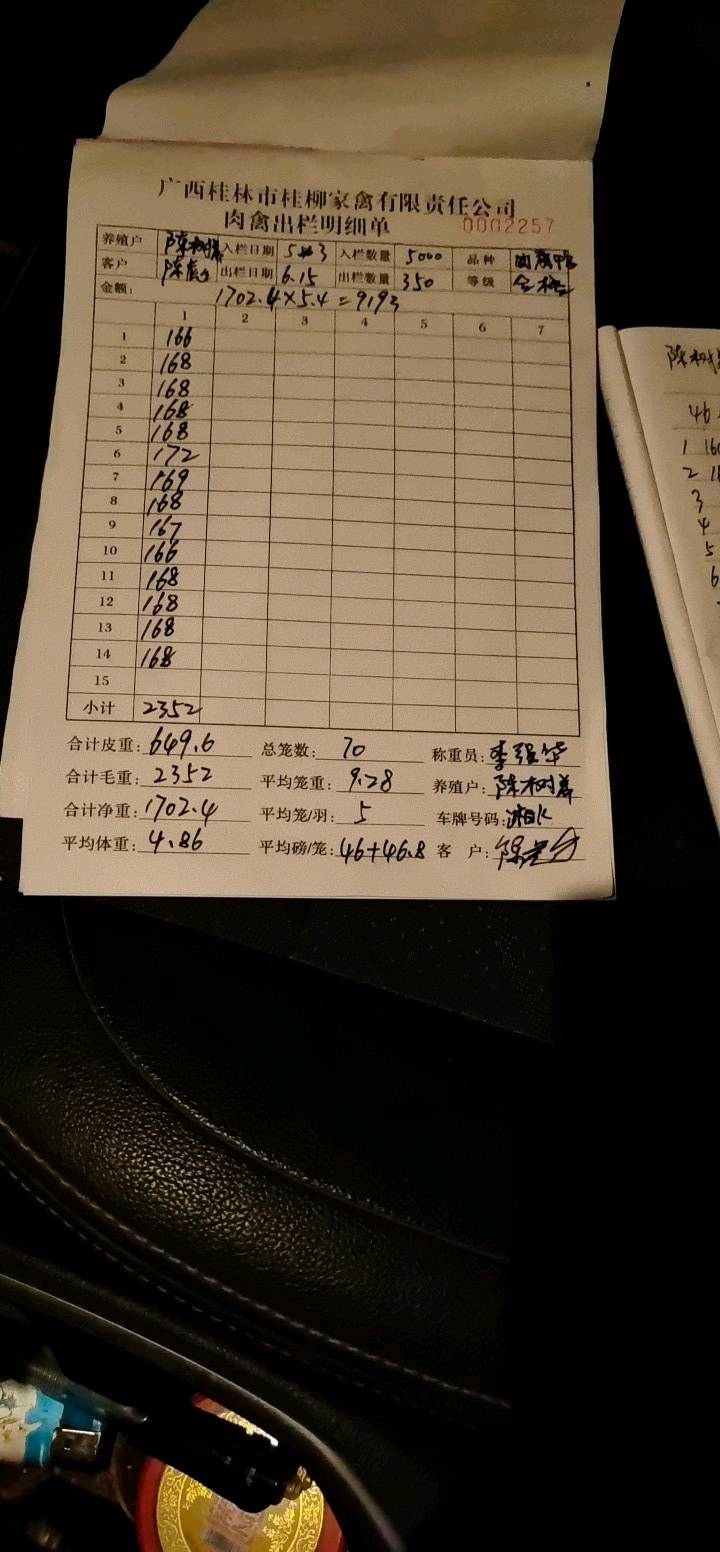 广西桂林市桂柳家禽有限责任公司
肉禽出栏明细单 0002257
养殖户 陈树 入栏日期 入栏数量 5000 品种
客户 陈 出栏日期 6.15 出栏数量 350 等级 合格
金额: 1702.4×5.4=9193
1 2 3 4 5 6 7
1 166
2 168
3 168
4 168
5 168
6 172
7 169
8 168
9 167
10 166
11 168
12 168
13 168
14 168
15
小计 2352
合计皮重: 649.6 总笼数: 70 称重员: 李强华
合计毛重: 2352 平均笼重: 9.28 养殖户: 陈树
合计净重: 1702.4 平均笼/羽: 5 车牌号码:
平均体重: 4.86 平均磅/笼: 46+46.8 客 户:
陈树
46
1
2
3
4
5
6